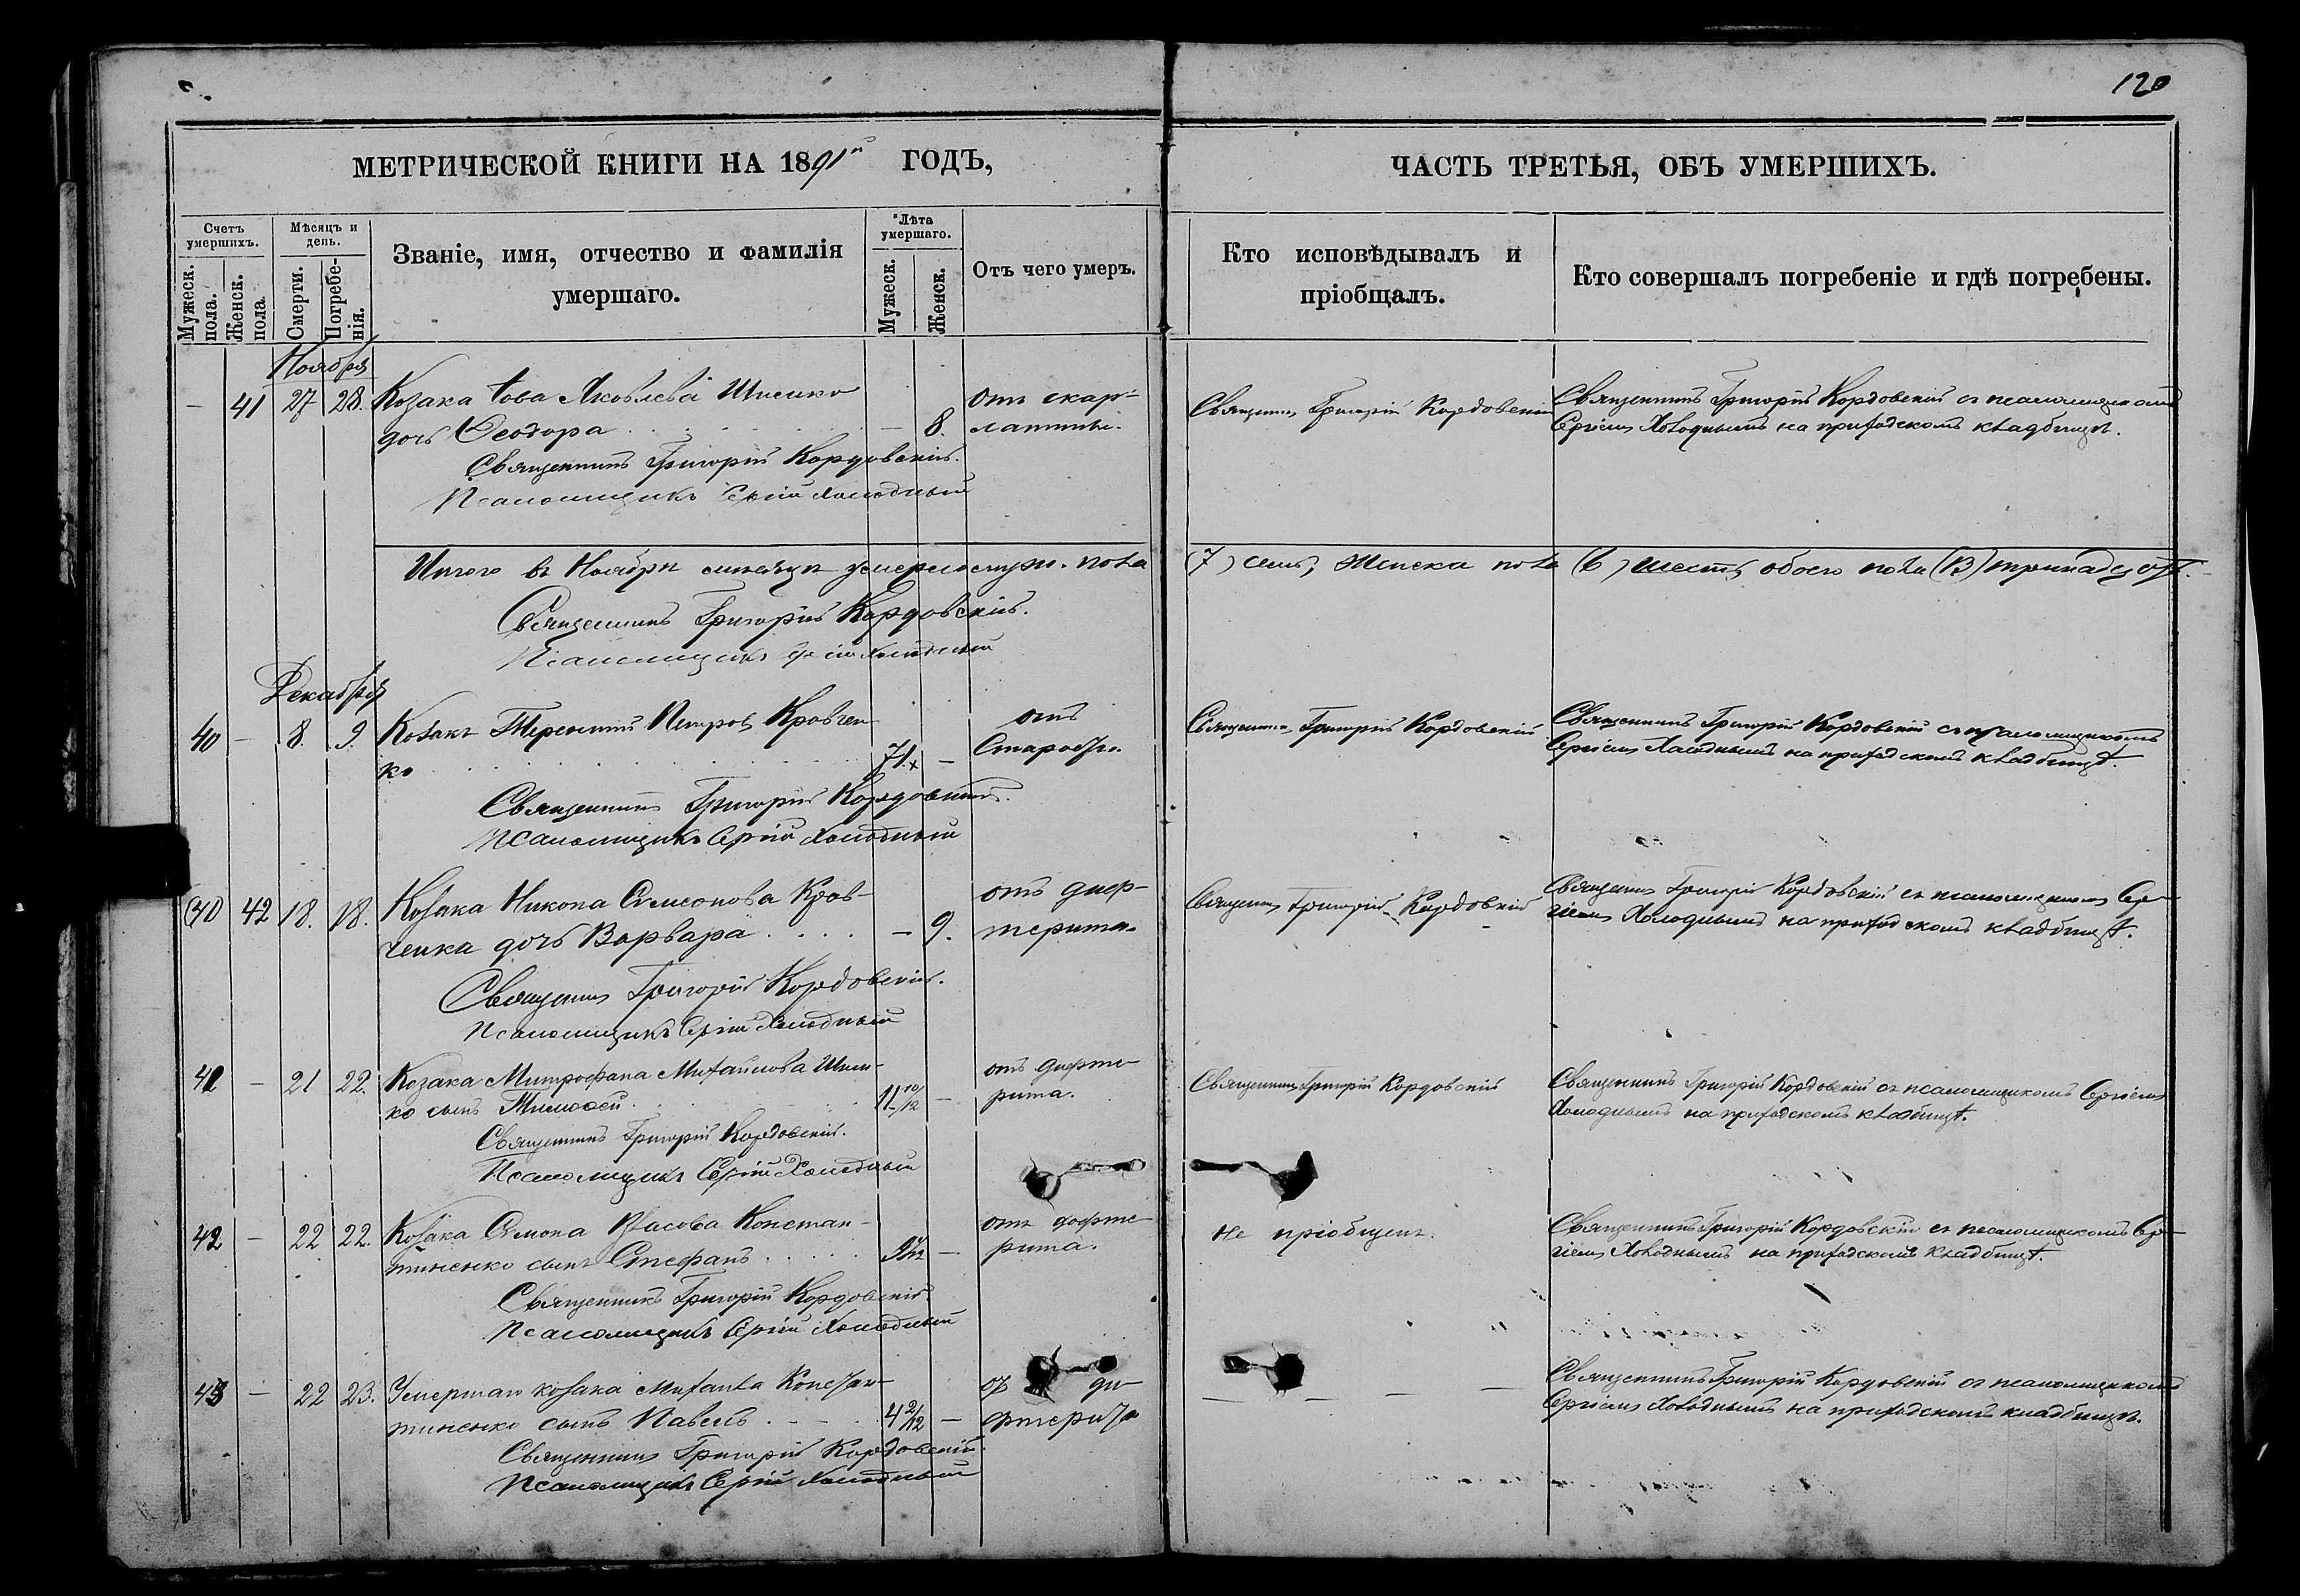 120
МЕТРИЧЕСКОЙ КНИГИ НА 1891й ГОДЪ,
ЧАСТЬ ТРЕТЬЯ, ОБЪ УМЕРШИХЪ.
Счетъ умершихъ.
Мужеск. пола.
Женск. пола.
Мѣсяцъ и день.
Смерти.
Погребенія.
Званіе, имя, отчество и фамилія
умершаго.
Лѣта умершаго.
Мужеск.
Женск.
Отъ чего умеръ.
Кто исповѣдывалъ и
пріобщалъ.
Кто совершалъ погребеніе и гдѣ погребены.
Ноября
— 41 27 28. Козака Іова Яковлева отъ скар-
дочь Ѳеодора — 8. латины.
Священникъ Григорій Кордовскій
Священникъ Григорій Кордовскій съ псаломщикомъ
Сергіемъ Холоднымъ на приходскомъ кладбищѣ.
Священникъ Григорій Кордовскій.
Псаломщикъ Сергій Холодный
Итого въ Ноябрѣ мѣсяцѣ умерло муж. пола (7) семь, женска пола (6) шесть, обоего пола (13) тринадцать.
Священникъ Григорій Кордовскій.
Псаломщикъ Сергій Холодный
Декабря
40 — 8. 9. Козакъ Терентій Петровъ Кравчен- отъ
ко 71 — старости.
Священникъ Григорій Кордовскій
Священникъ Григорій Кордовскій съ псаломщикомъ
Сергіемъ Холоднымъ на приходскомъ кладбищѣ.
Священникъ Григорій Кордовскій.
Псаломщикъ Сергій Холодный
42 18. 18. Козака Никона Симеонова Крав- отъ диф-
ченка дочь Варвара — 9. терита.
Священникъ Григорій Кордовскій
Священникъ Григорій Кордовскій съ псаломщикомъ Сер-
гіемъ Холоднымъ на приходскомъ кладбищѣ.
Священникъ Григорій Кордовскій.
Псаломщикъ Сергій Холодный
— 21 22. Козака Митрофана Михайлова отъ дифте-
ко сынъ Тимоѳей 11 10/12 — рита.
Священникъ Григорій Кордовскій
Священникъ Григорій Кордовскій съ псаломщикомъ Сергіемъ
Холоднымъ на приходскомъ кладбищѣ.
Священникъ Григорій Кордовскій.
Псаломщикъ Сергій Холодный
42 — 22 22. Козака Симона Власова Констан- отъ дифте-
тиненко сынъ Стефанъ — рита.
Не пріобщенъ.
Священникъ Григорій Кордовскій съ псаломщикомъ Сер-
гіемъ Холоднымъ на приходскомъ кладбищѣ.
Священникъ Григорій Кордовскій.
Псаломщикъ Сергій Холодный
43 — 22 23. Умершаго козака Михаила Констан- ди-
тиненко сынъ Павелъ 4 2/12 — фтерита
Священникъ Григорій Кордовскій съ псаломщикомъ
Сергіемъ Холоднымъ на приходскомъ кладбищѣ.
Священникъ Григорій Кордовскій.
Псаломщикъ Сергій Холодный